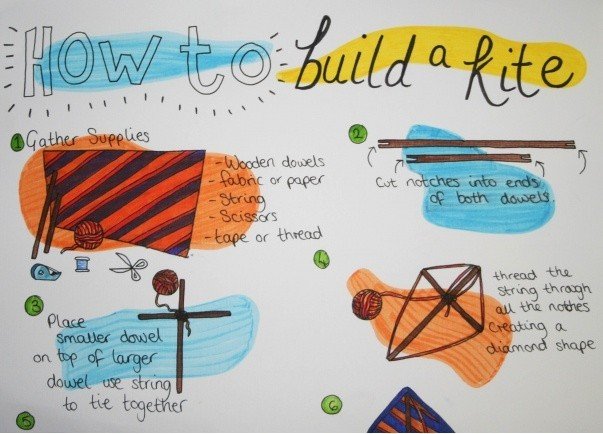 How to build a kite
1 Gather Supplies
- Wooden dowels
- fabric or paper
- String
- Scissors
- tape or thread
2
Cut notches into ends
of both dowels.
3
Place
smaller dowel
on top of larger
dowel use string
to tie together
4
thread the
string through
all the nothes
Creating a
diamond shape
5
6